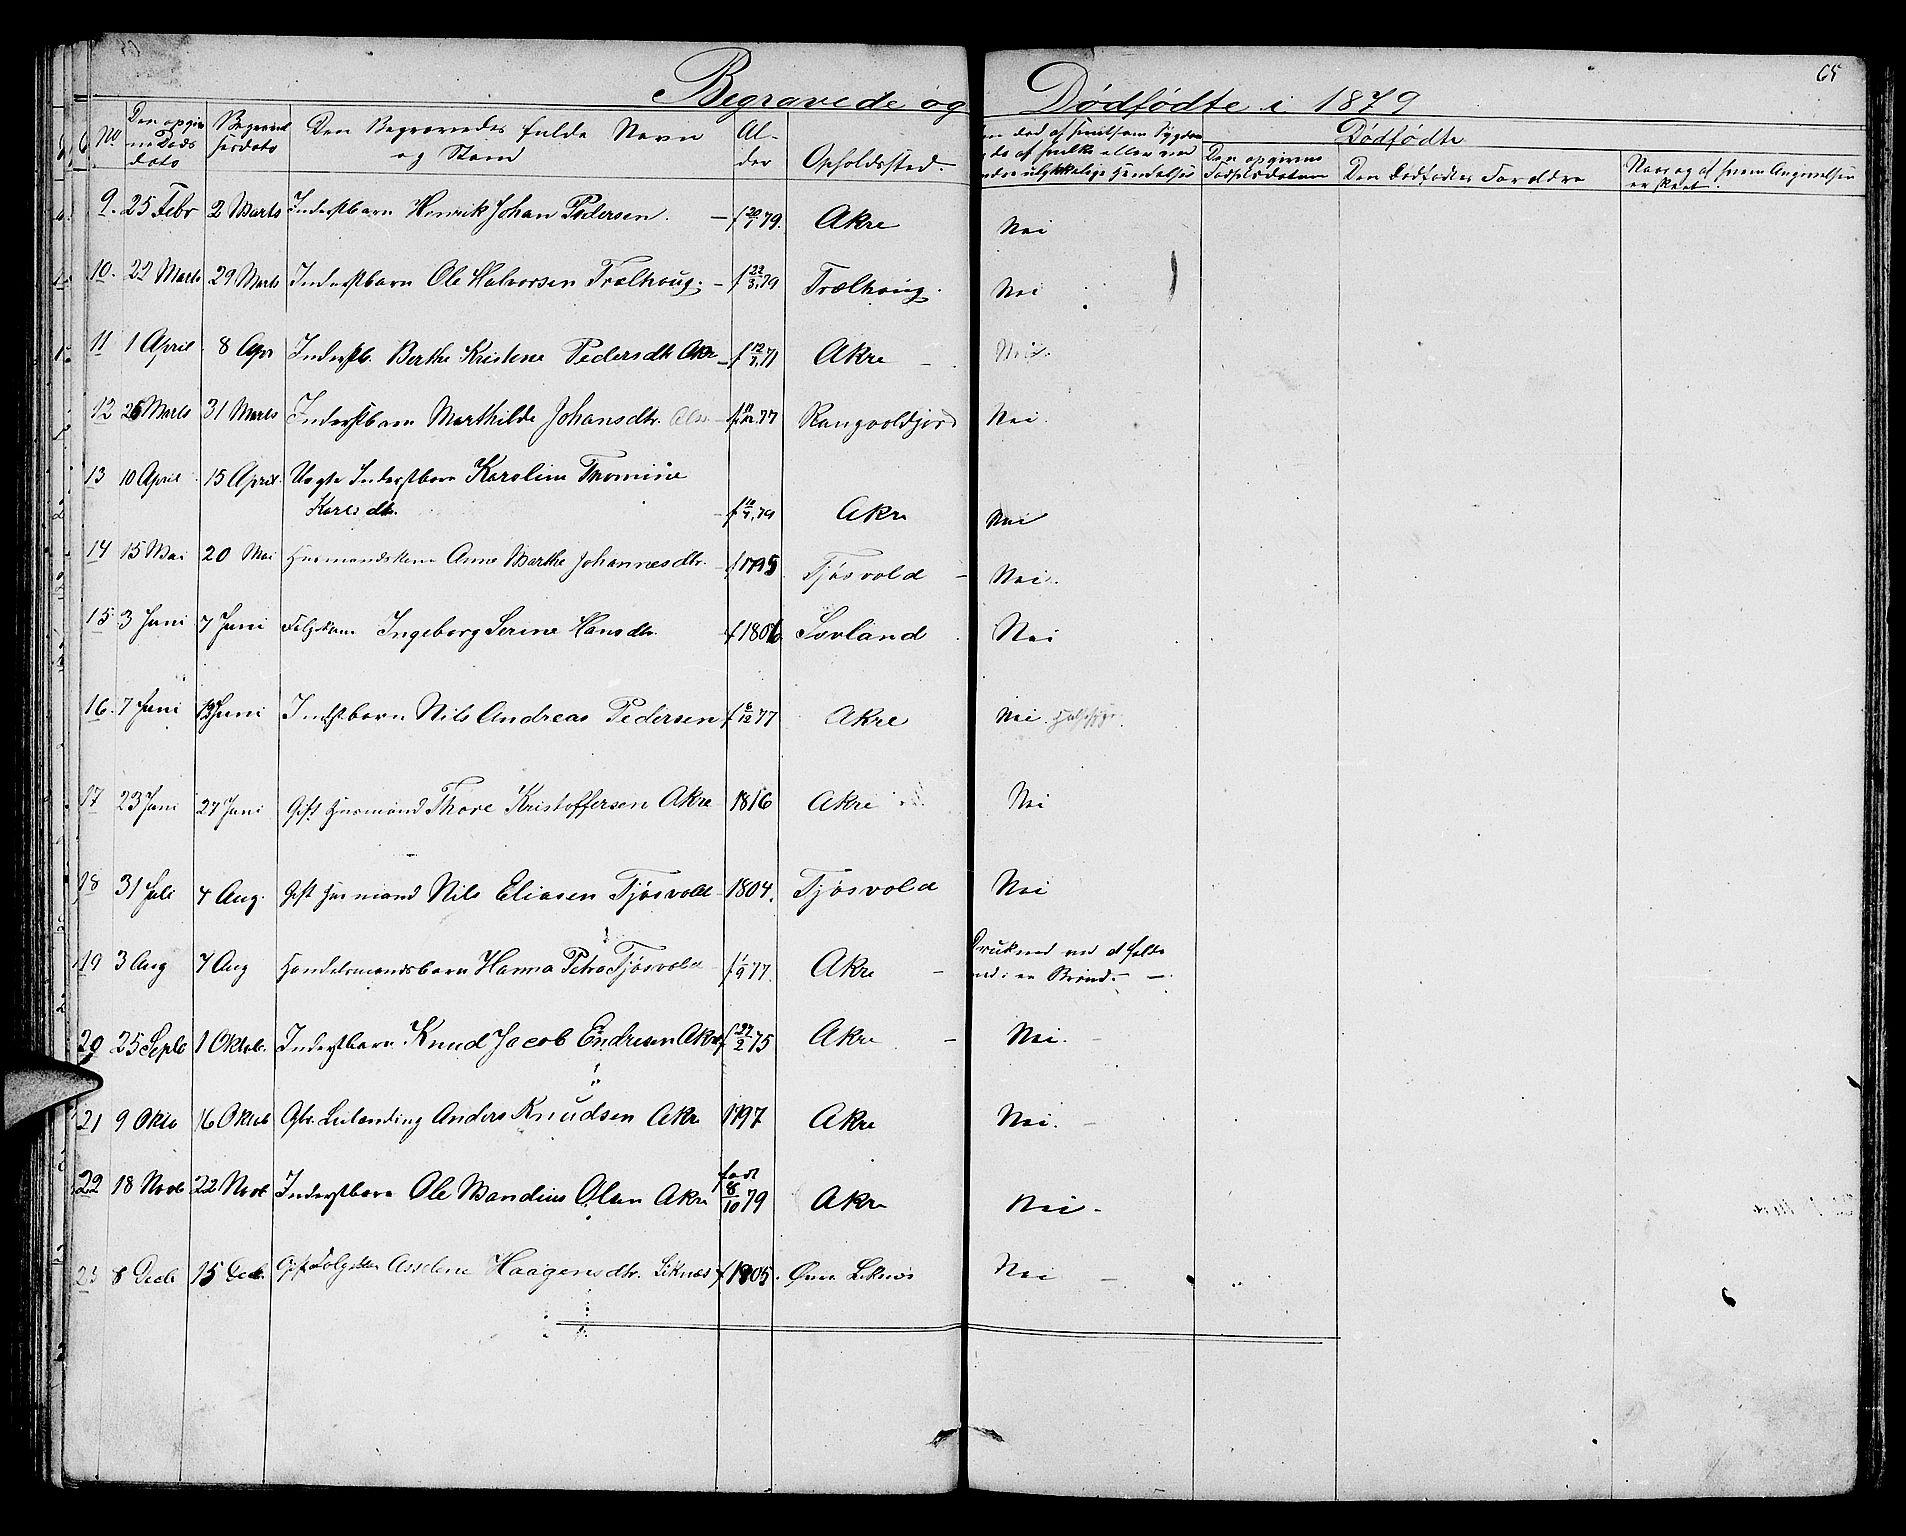 65
Begravede og Dødfødte i 1879
No
Den opgivne Døds dato
Begravelsesdato
Den Begravedes fulde Navn og Stand
Alder
Opholdssted.
Dødfødte
Den opgivne Fødselsdatum
Den Dødfødtes Forældre
9. 25 Febr 2 Marts Inderstbarn Henrik Johan Pedersen. – f 79. Akre Nei
10. 22 Marts 29 Marts Inderstbarn Ole Halvorsen Trælhoug. – f 22/3 79 Trælhoug. Nei
11 1 April 8 Apr Inderstb. Berthe Kristene Pedersdtr Akr – f 12/7 71 Akre – Nei.
12 26 Marts 31 Marts Inderstbarn Marthilde Johansdtr. f 77 Nei.
13 10 April 15 April Uægte Inderstbarn Karoline Thomine
Karlsdtr. – f 79 Akre Nei
14 15 Mai 20 Mai Husmandskone Anne Marthe Johannesdtr. – f 1795 Tjøsvold – Nei.
15 3 Juni 7 Juni Ingeborg Serine Hansdtr. f 1806 Sørland. Nei
16. 7 Juni 12 Juni Inderstbarn Nils Andreas Pedersen f 6/12 77 Akre Nei.
17 23 Juni 27 Juni Gift Husmand Thore Kristoffersen Akre 1816 Akre Nei
18 31 Juli 4 Aug. Gift Husmand Nils Eliasen Tjøsvold 1804. Tjøsvold Nei
19 3 Aug 7 Aug Handelsmandsbarn Hanna Petra Tjøsvold f 1/9 77. Akre – Druknet ved at falde
ned i en Brønd. –
20 25 Septb 1 Oktob. Inderstbarn Knud Jacob Endresen Akre f 27/2 75 Akre – Nei. –
21 9 Okto 16 Oktob Leilænding Anders Knudsen Akre 1797 Akre Nei. –
22 18 Novb 22 Novb Inderstbarn Ole Mandius Olsen Akre født 8/10 79 Akre Nei –
23 8 Decb 15 Decb. Gift Asseline Haagensdtr. Liknes f 1805. Øvre Liknes Nei –